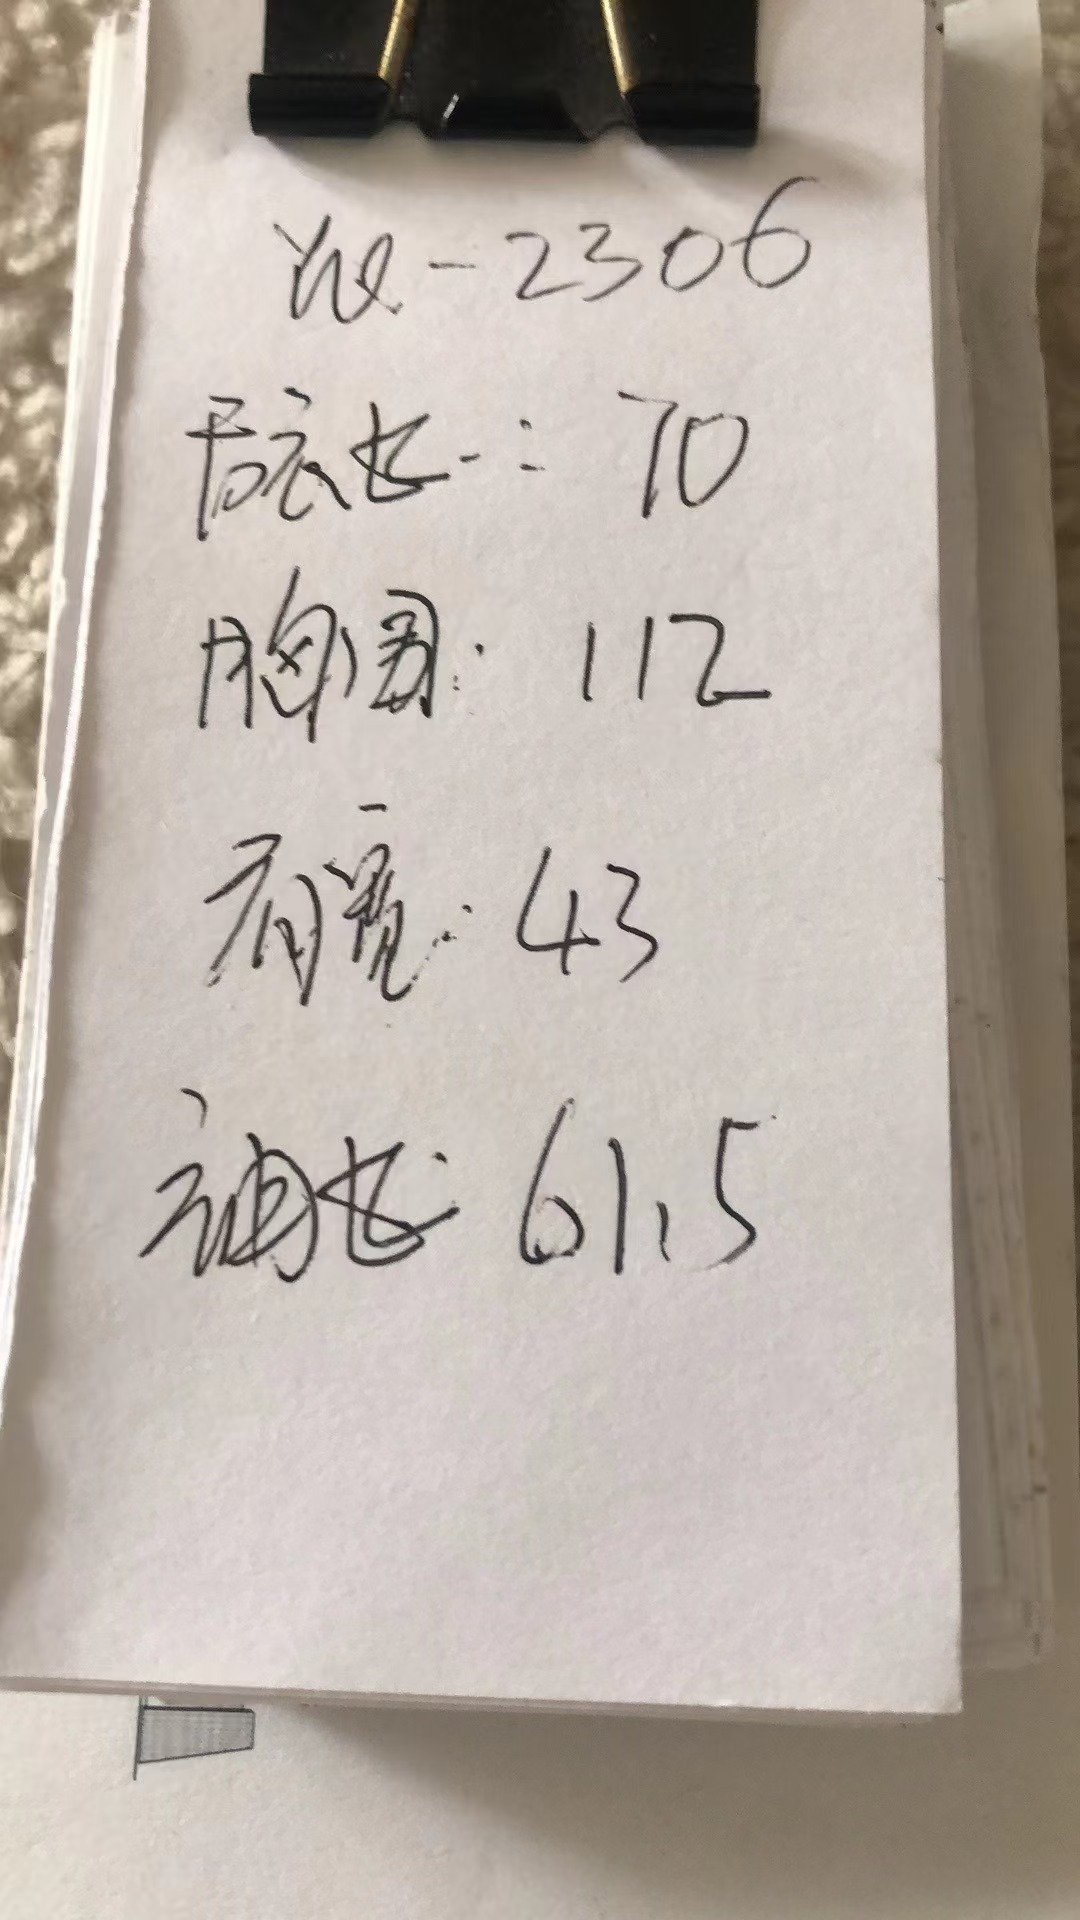 YW-2306
后衣长: 70
胸围: 112
肩宽: 43
袖长: 61.5